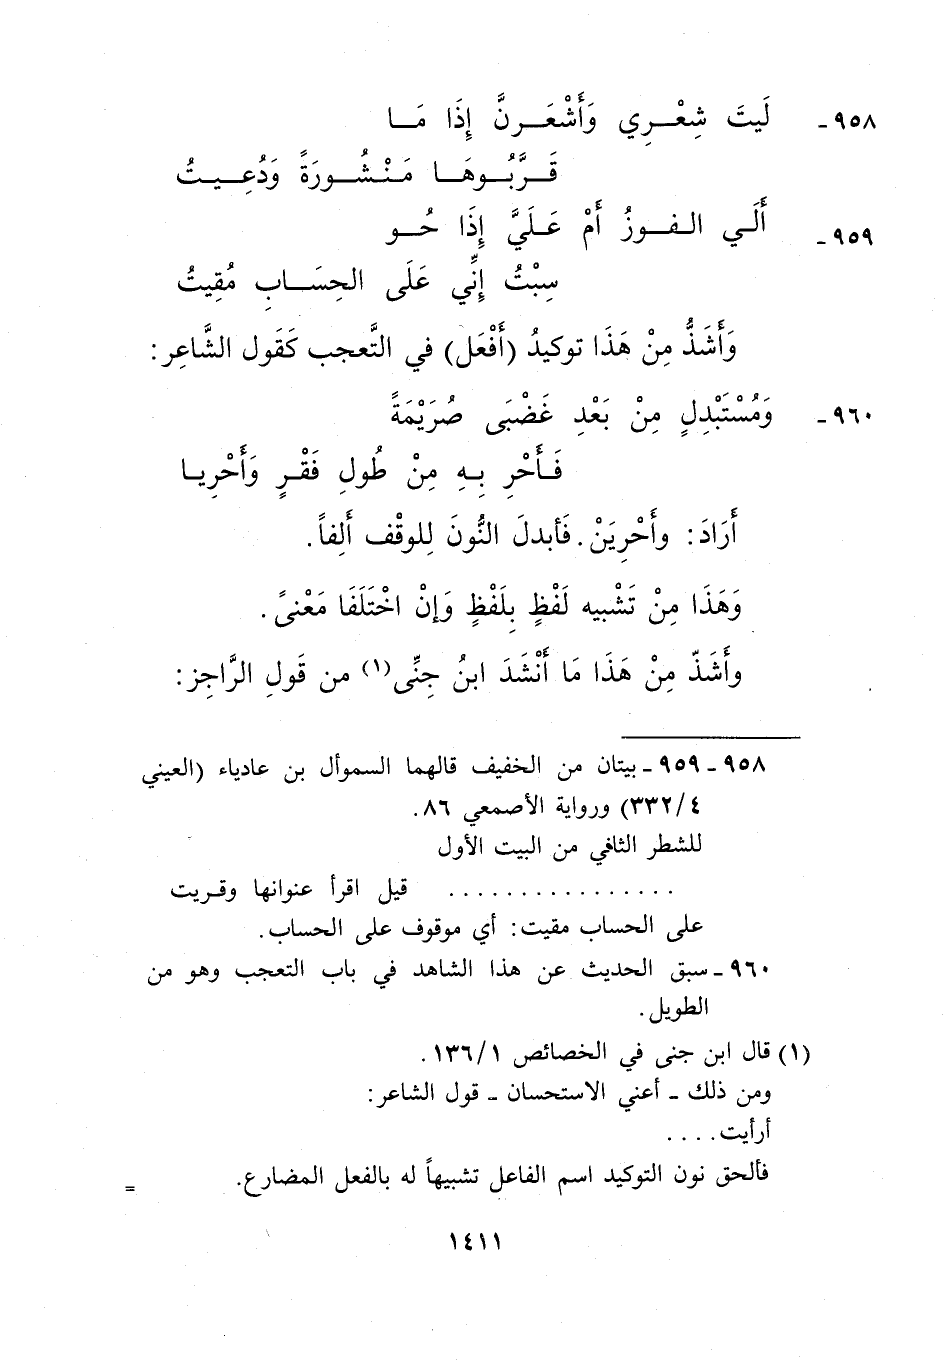 ٩٥٨- لَيتَ شِعْـــرِي وَأَشْعَـــرنَّ إِذَا مَـــا
قَـــرَّبُـــوهَـــا مَـنْـشُـــورَةً وَدُعِـــيـــتُ
٩٥٩- أَلَـي الـفـــوزُ أَمْ عَـلَيَّ إِذَا حُـــو
سِبْتُ إِنِّي عَلَى الحِسَـــابِ مُقِيتُ
وَأَشَذُّ مِنْ هَذَا توكيدُ (أَفْعَل) في التَّعجب كَقَول الشَّاعِر:
٩٦٠- وَمُسْتَبْدِلٍ مِنْ بَعْدِ غَضْبَى صُرَيْمَةً
فَـأَحْرِ بِـهِ مِنْ طُولِ فَقْـرٍ وَأَحْرِيـا
أَرَادَ: وأَحْرِيَنْ. فَأبدلَ النُّونَ لِلوقْف أَلِفاً.
وَهَذَا مِنْ تَشْبيه لَفْظٍ بِلَفْظٍ وَإِنْ اخْتَلَفَا مَعْنىً.
وأَشَذّ مِنْ هَذَا مَا أَنْشَدَ ابنُ جِنِّى(١) من قَولِ الرَّاجِز:
٩٥٨ - ٩٥٩ - بيتان من الخفيف قالهما السموأل بن عادياء (العيني
٤/ ٣٣٢) ورواية الأصمعي ٨٦.
للشطر الثافي من البيت الأول
................ قيل اقرأ عنوانها وقـريت
على الحساب مقيت: أي موقوف على الحساب.
٩٦٠ - سبق الحديث عن هذا الشاهد في باب التعجب وهو من
الطويل.
(١) قال ابن جنى في الخصائص ١/ ١٣٦.
ومن ذلك - أعني الاستحسان - قول الشاعر:
أرأيت....
فألحق نون التوكيد اسم الفاعل تشبيهاً له بالفعل المضارع. =
١٤١١